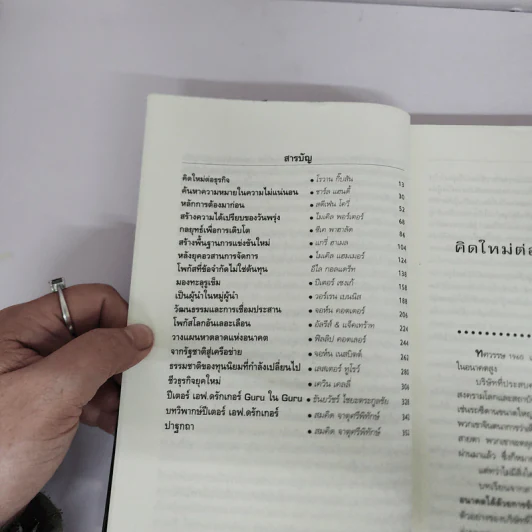 สารบัญ
คิดใหม่ต่อธุรกิจ • โรวาน กิ๊บสัน 13
ค้นหาความหมายในความไม่แน่นอน • ชาร์ล แฮนดี้ 30
หลักการต้องมาก่อน • สตีเฟน โควี่ 52
สร้างความได้เปรียบของวันพรุ่ง • ไมเคิล พอร์เตอร์ 68
กลยุทธ์เพื่อการเติบโต • ซีเค พาฮาลัด 86
สร้างพื้นฐานการแข่งขันใหม่ • แกรี่ ฮาเมล 104
หลังยุคอวสานการจัดการ • ไมเคิล แฮมเมอร์ 124
โฟกัสที่ข้อจำกัดไม่ใช่ต้นทุน • อีไล โกลแดร็ท 138
มองทะลุรูเข็ม • ปีเตอร์ เซงเก้ 158
เป็นผู้นำในหมู่ผู้นำ • วอร์เรน เบนนิส 188
วัฒนธรรมและการเชื่อมประสาน • จอห์น คอตเตอร์ 206
โฟกัสโลกอันเลอะเลือน • อัลรีส์ & แจ็คเทร้าท 224
วางแผนหาตลาดแห่งอนาคต • ฟิลลิป คอตเลอร์ 244
จากรัฐชาติสู่เครือข่าย • จอห์น เนสบิตต์ 262
ธรรมชาติของทุนนิยมที่กำลังเปลี่ยนไป • เลสเตอร์ ทูโรว์ 285
ชีวธุรกิจยุคใหม่ • เควิน เคลลี่ 304
ปีเตอร์ เอฟ.ดรักเกอร์ Guru ใน Guru • ธันยวัชร์ ไชยตระกูลชัย 328
บทวิพากษ์ปีเตอร์ เอฟ.ดรักเกอร์ • สมคิด จาตุศรีพิทักษ์ 340
ปาฐกถา • สมคิด จาตุศรีพิทักษ์ 352
คิดใหม่ต่อ
ทศวรรษ 1960
ในอนาคตสูง
บริษัทที่ประสบ
สงครามโลกและสถาบัน
พวกเขาจินตนาการว่า
สายตา พวกเขาจะ
ผ่านมาแล้ว
แต่ทว่าไม่มีสิ่งใด
บทเรียนจาก
อนาคตได้ด้วยการ
ตัวอย่างของบริษัท